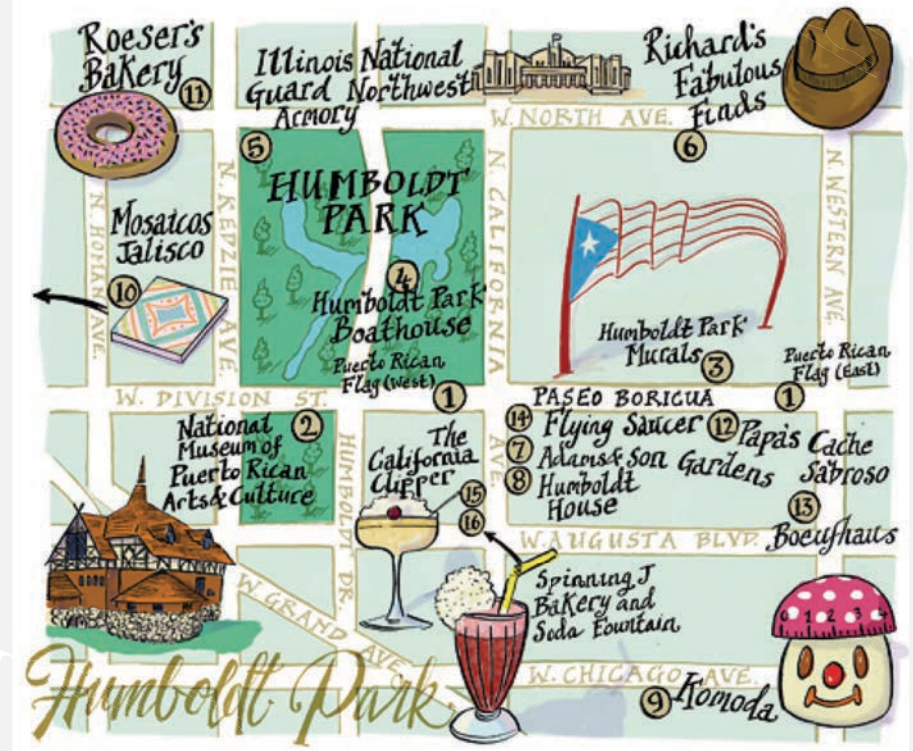 Roeser's
Bakery
11
Illinois National
Guard Northwest
Armory
Richard's
Fabulous
Finds
W. NORTH AVE.
5
6
HUMBOLDT
PARK
N. HOMAN AVE.
N. KEDZIE AVE.
N. CALIFORNIA AVE.
N. WESTERN AVE.
Mosaicos
Jalisco
10
4
Humboldt Park
Boathouse
Puerto Rican
Flag (West)
1
Humboldt Park
Murals
3
Puerto Rican
Flag (East)
1
W. DIVISION ST.
PASEO BORICUA
National
Museum of
Puerto Rican
Arts & Culture
2
HUMBOLDT DR.
The
California
Clipper
15
16
14 Flying Saucer
7 Adams & Son Gardens
8 Humboldt
House
12 Papa's Cache
Sabroso
13
Boeufhaus
W. AUGUSTA BLVD.
W. GRAND AVE.
Spinning J
Bakery and
Soda Fountain
W. CHICAGO AVE.
9 Komoda
0 1 2 3 4
Humboldt Park